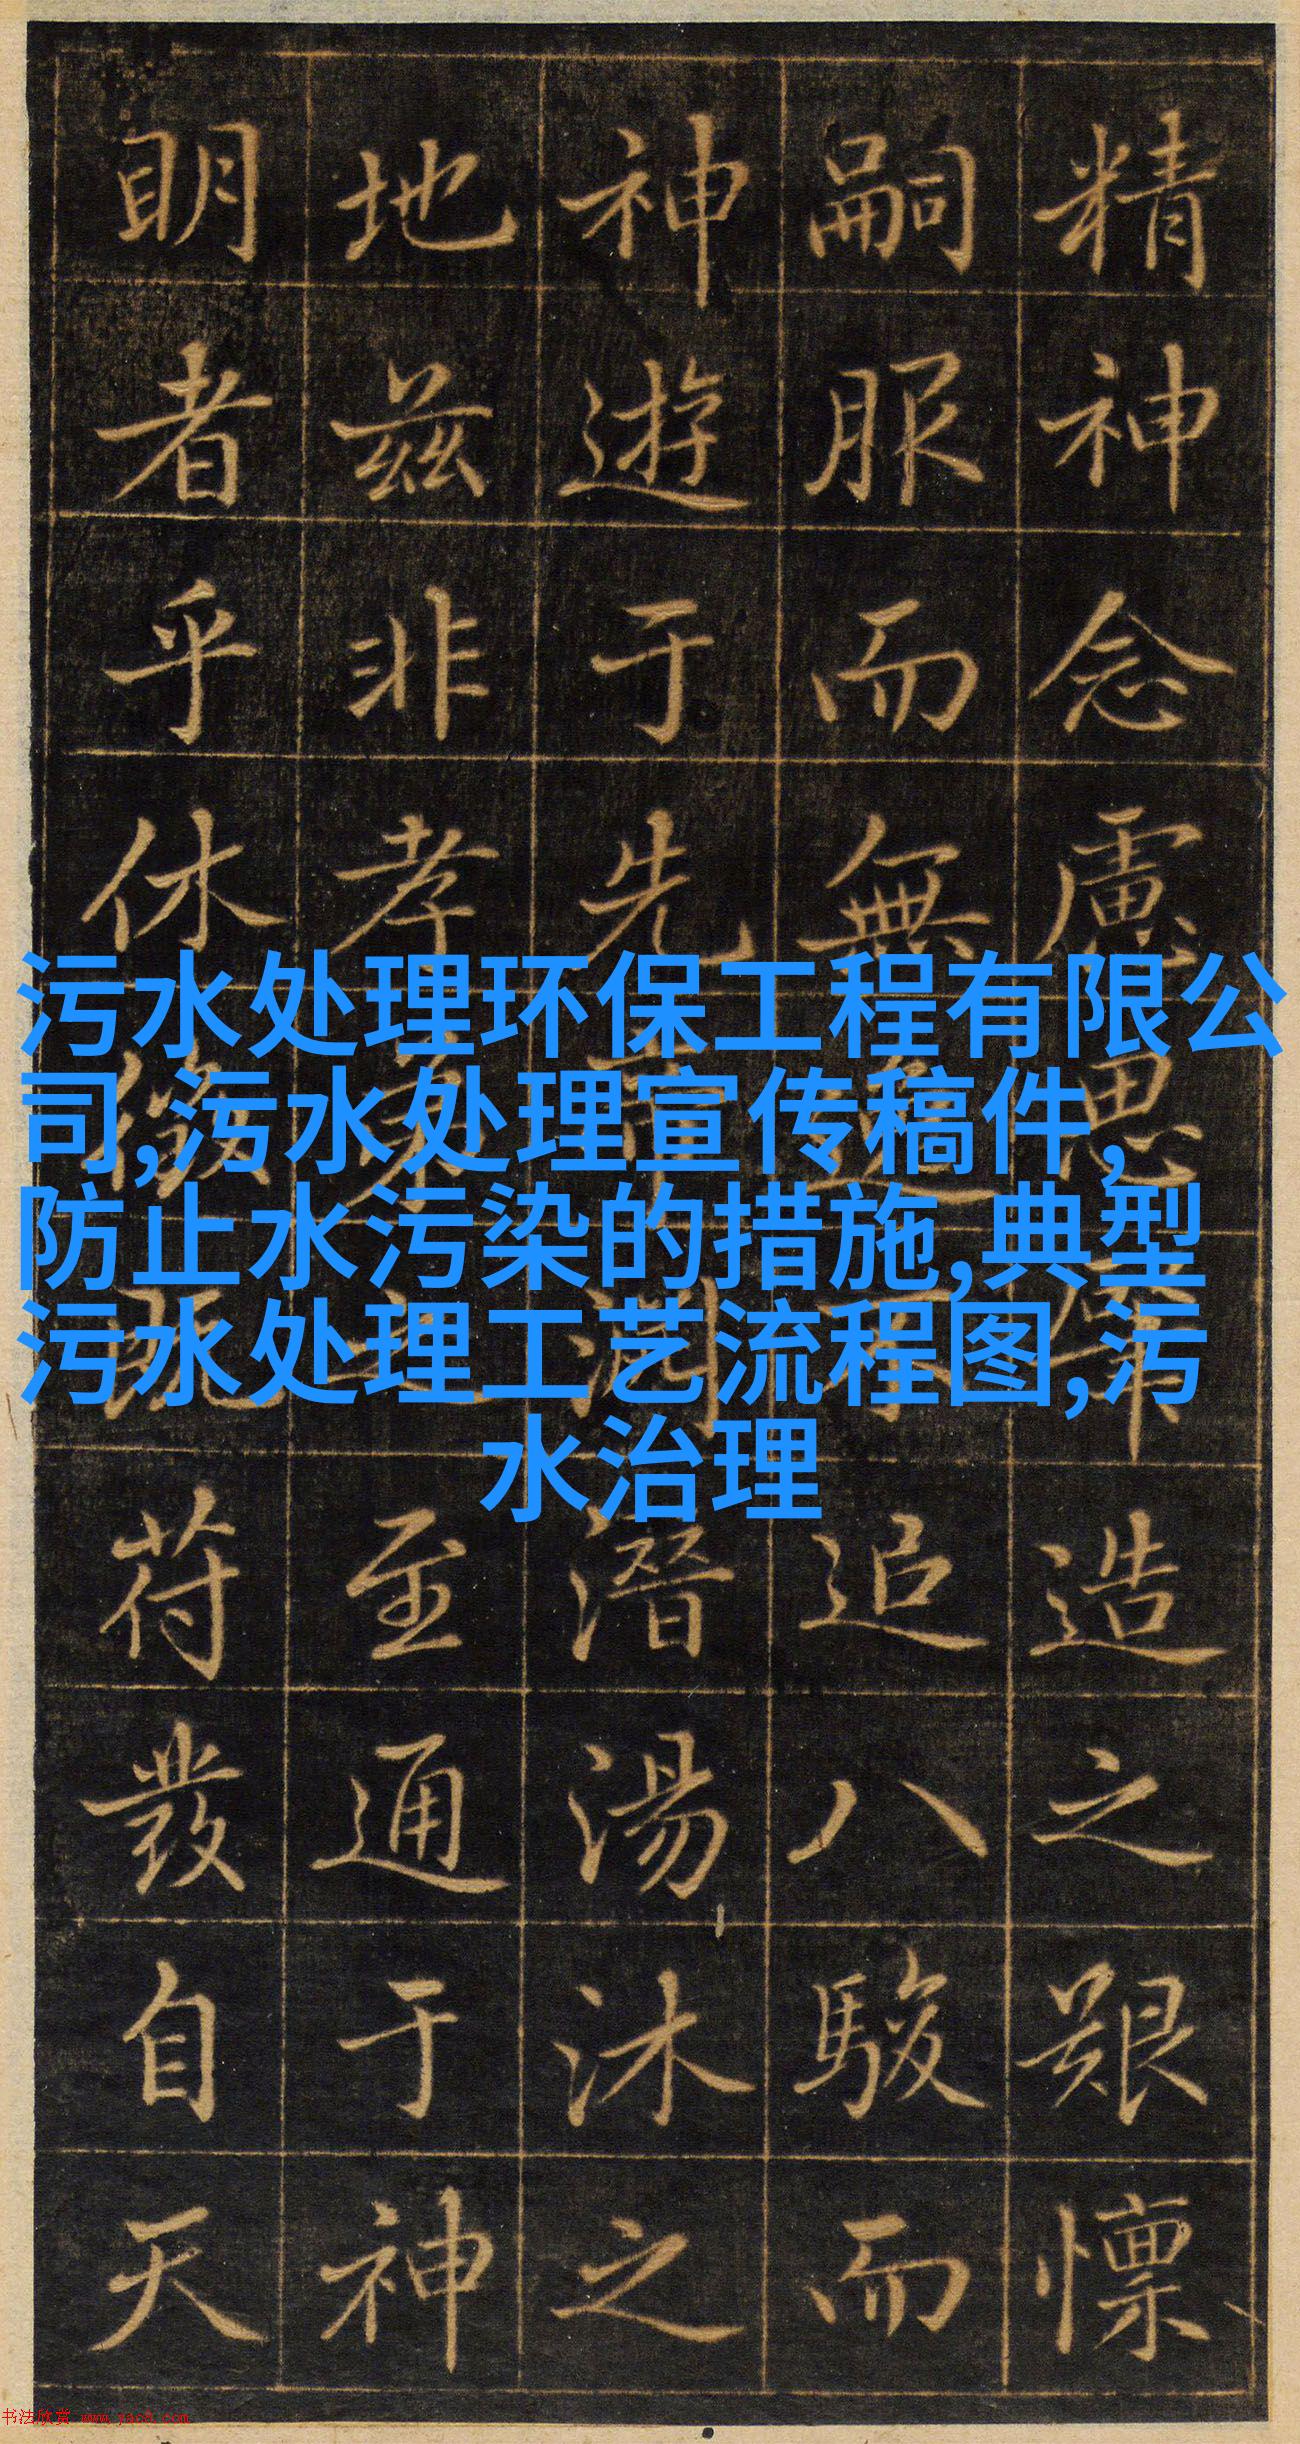 污水处理环保工程有限公
司,污水处理宣传稿件,
防止水污染的措施,典型
污水处理工艺流程图,污
水治理
精神念慮思造之艱懍
嗣服而無逸不追八駿而
神遊于先淵潛湯沐之
地兹非孝之至通于神
明者乎休徵既苻發自天
书法欣赏 www.yac8.com